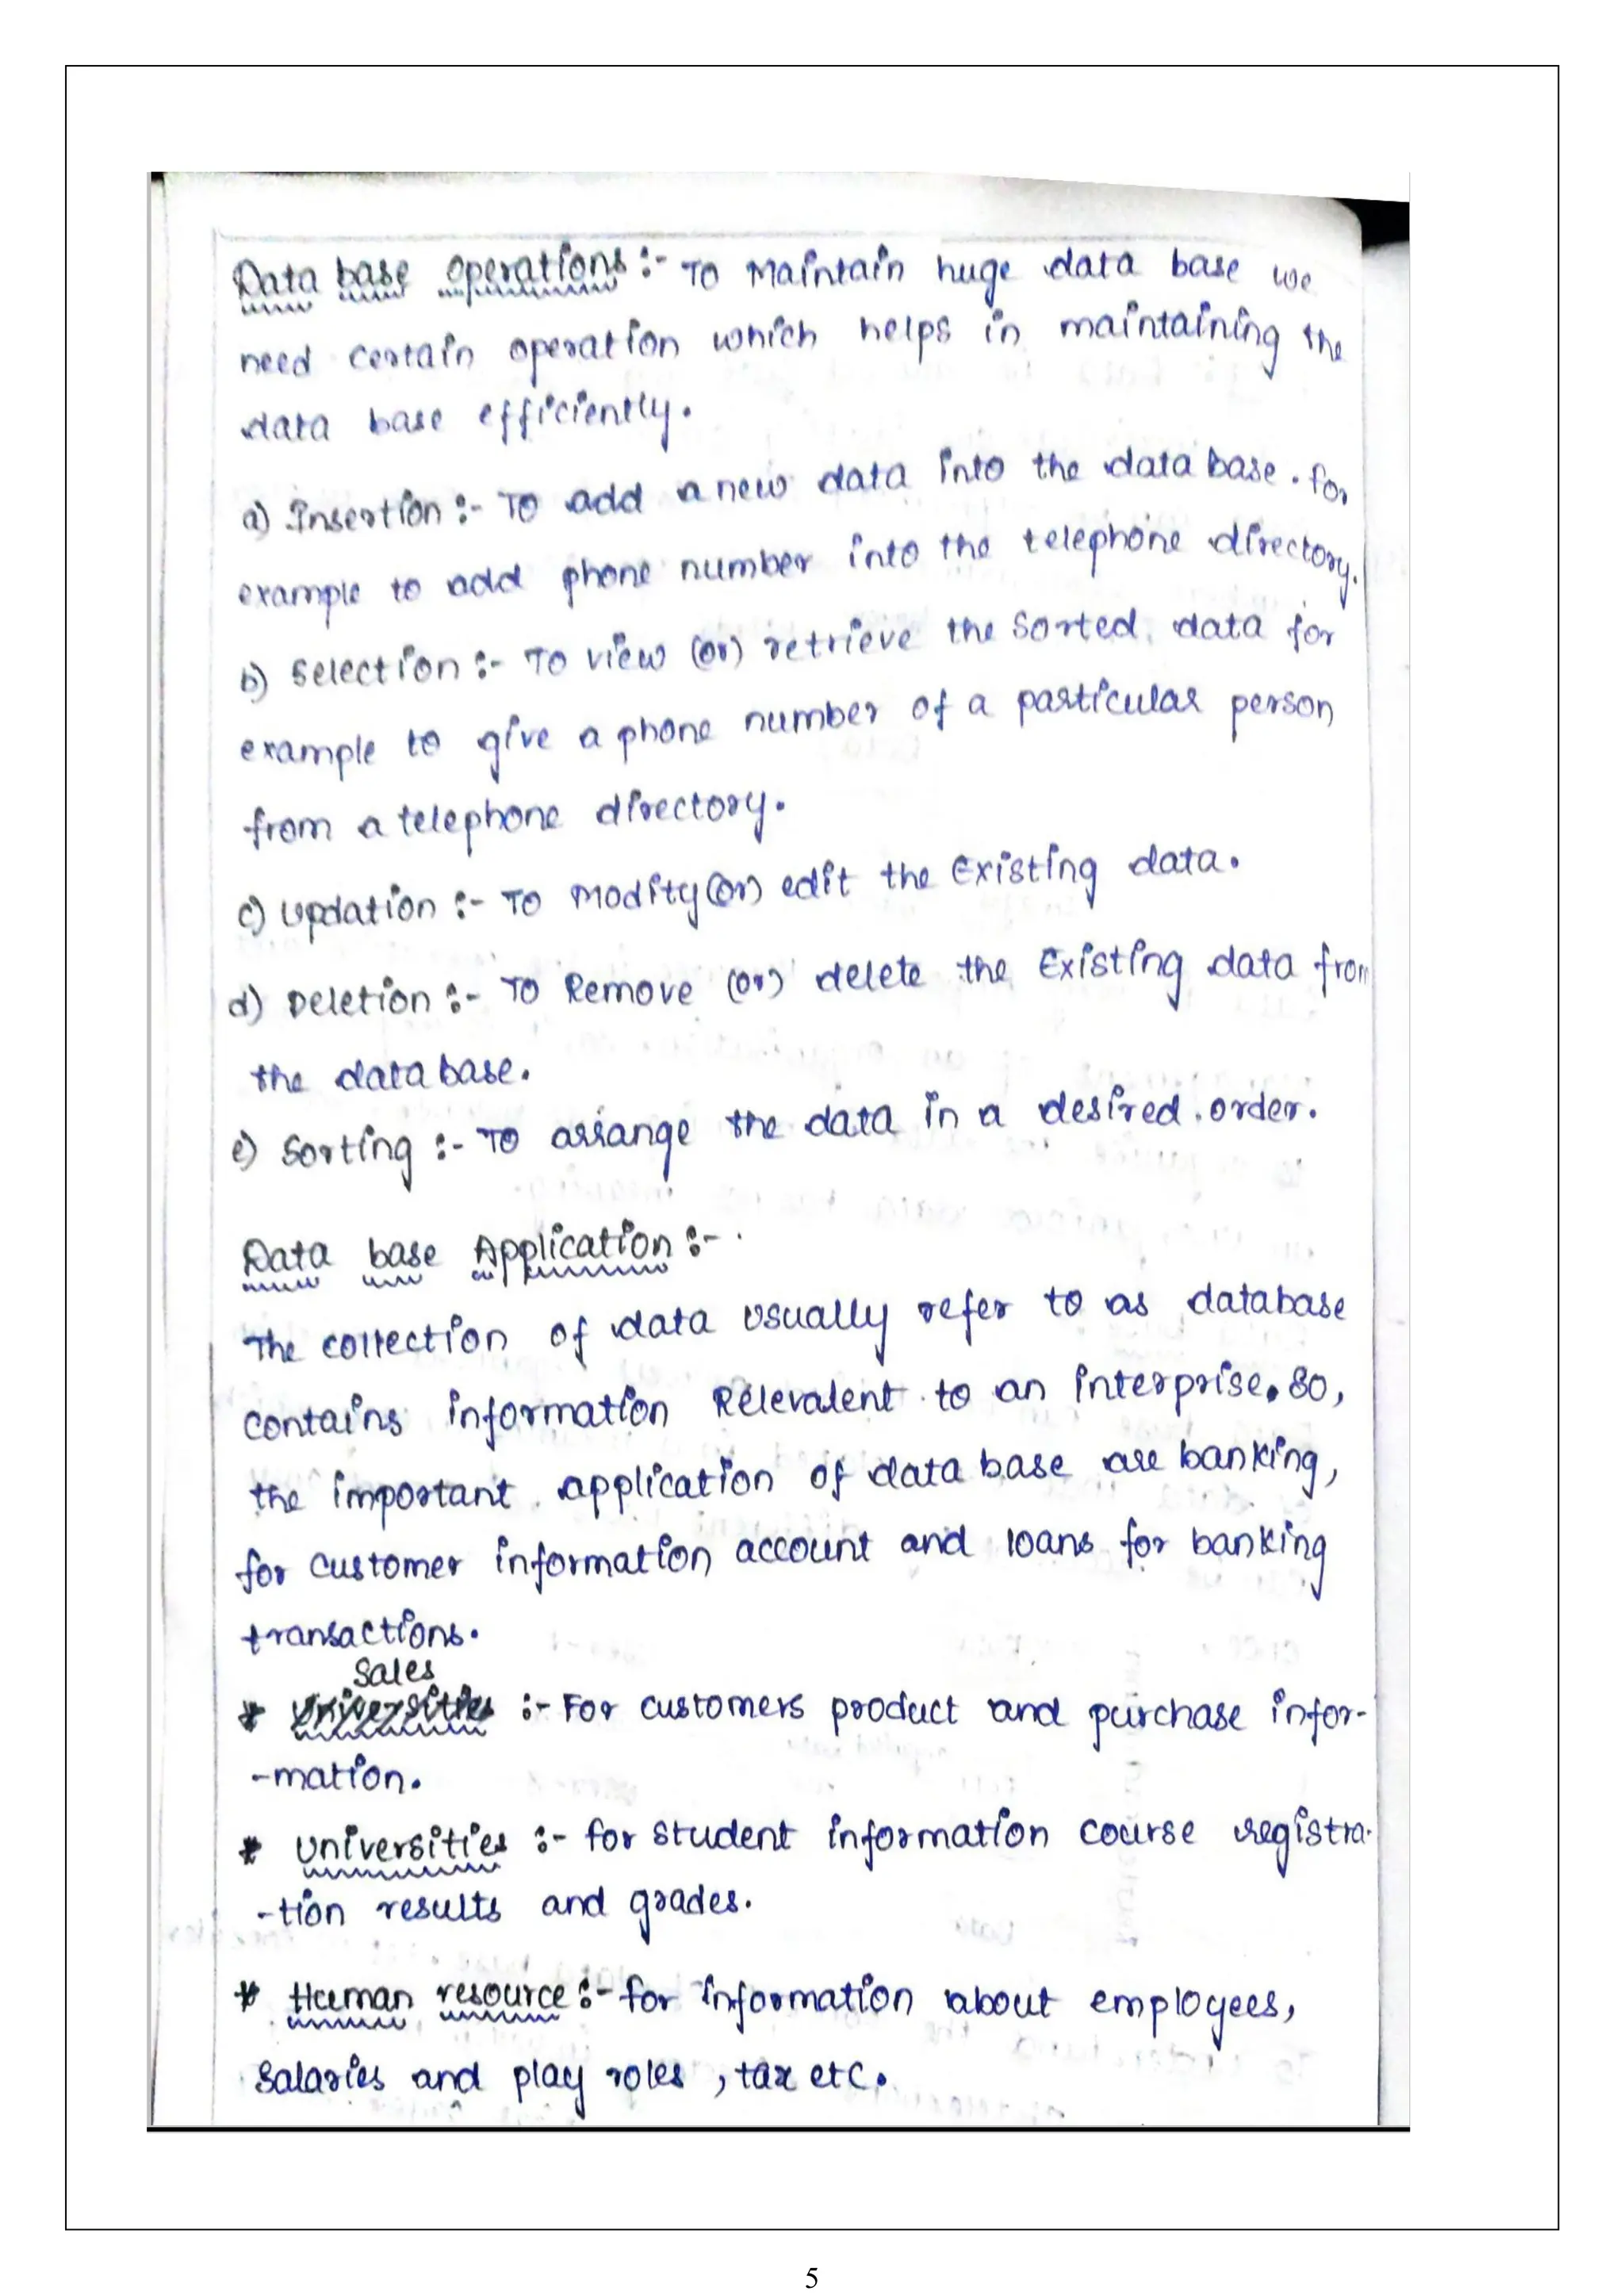 Data base operations :- To Maintain huge data base we
need certain operation which helps in maintaining the
data base efficiently.
a) Insertion :- To add a new data into the data base. for
example to add phone number into the telephone directory.
b) Selection :- To view (or) retrieve the Sorted data for
example to give a phone number of a particular person
from a telephone directory.
c) Updation :- To Modity (or) edit the Existing data.
d) Deletion :- To Remove (or) delete the Existing data from
the data base.
e) Sorting :- To arrange the data in a desired order.
Data base Application :-
The collection of data usually refer to as database
contains information Relevalent to an interprise. So,
the important application of data base are banking,
for customer information account and loans for banking
transactions.
Sales
* Universities :- For customers product and purchase infor-
-mation.
* Universities :- for student information course registra-
-tion results and grades.
* Human resource :- for information about employees,
salaries and play roles, tax etc.
5